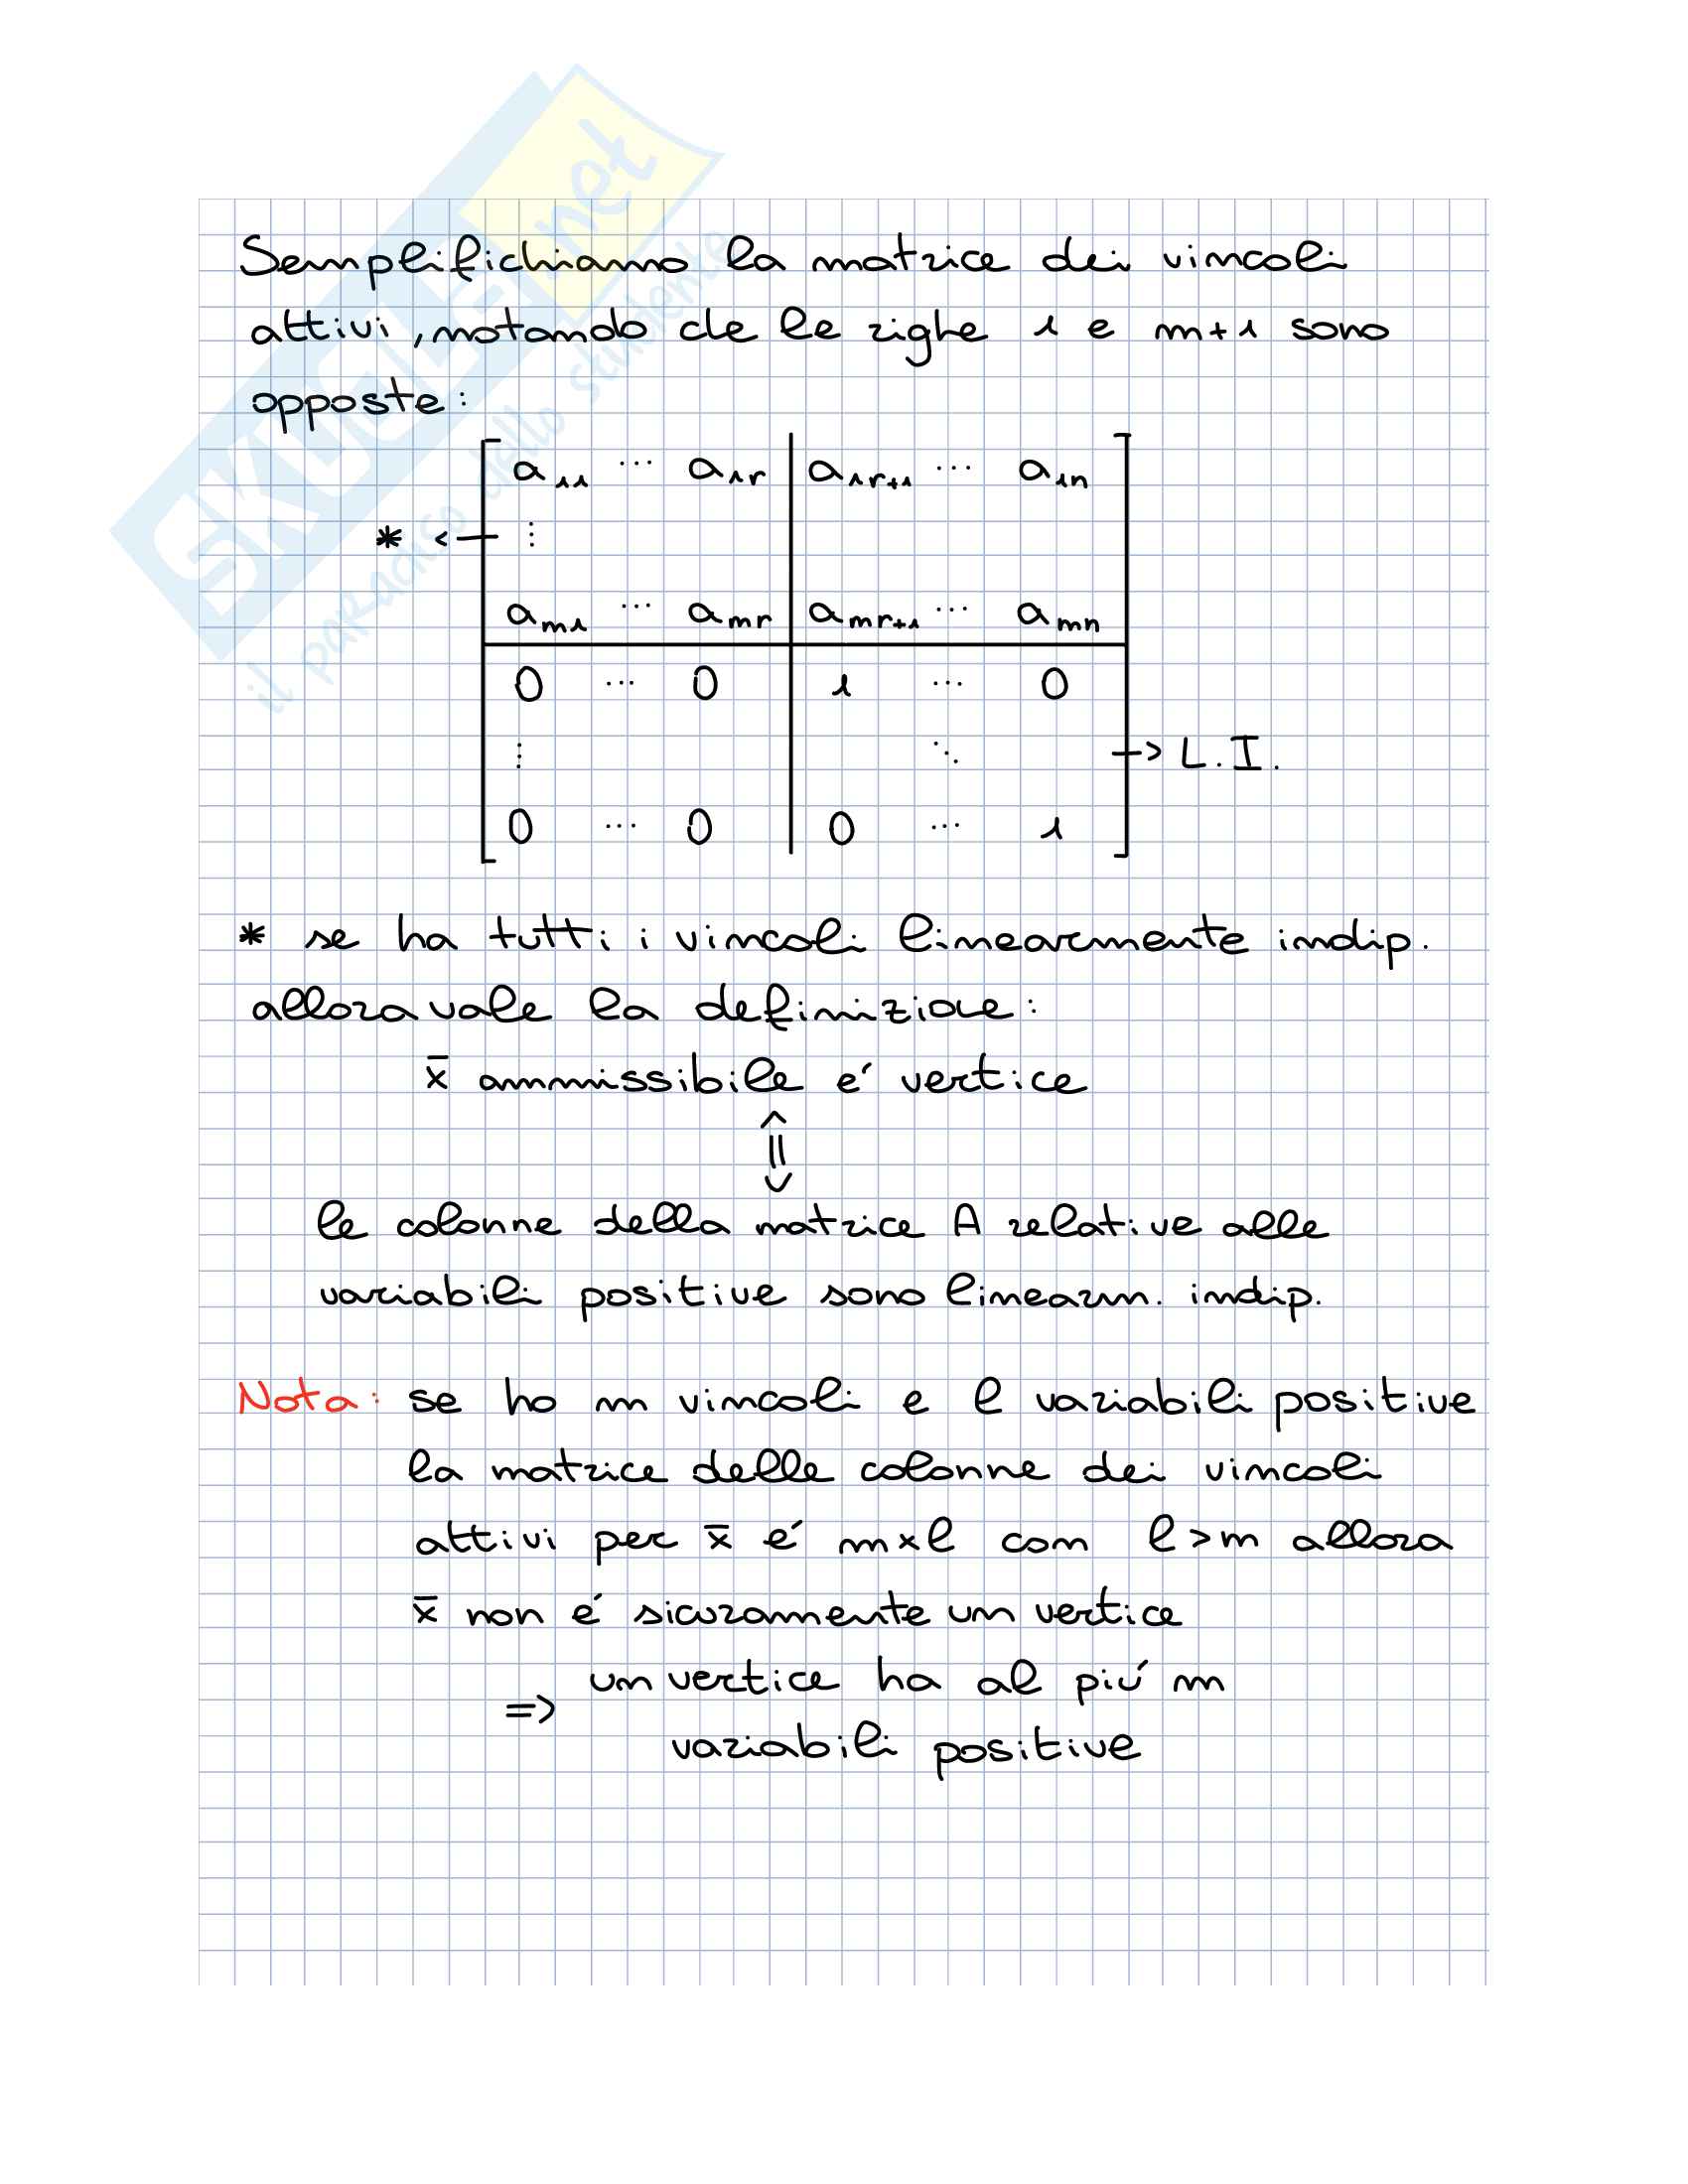 SKUOLA.net
il paradiso dello studente
Semplifichiamo la matrice dei vincoli
attivi, notando che le righe 1 e m+1 sono
opposte:
a11 ... a1r | a1r+1 ... a1n
* <- ⋮
am1 ... amr | amr+1 ... amn
0 ... 0 | 1 ... 0
⋮ ⋱ -> L.I.
0 ... 0 | 0 ... 1
* se ha tutti i vincoli linearmente indip.
allora vale la definizione:
x̄ ammissibile e' vertice
⇕
le colonne della matrice A relative alle
variabili positive sono linearm. indip.
Nota: se ho m vincoli e l variabili positive
la matrice delle colonne dei vincoli
attivi per x̄ é m×l con l>m allora
x̄ non é sicuramente un vertice
=> un vertice ha al piú m
variabili positive